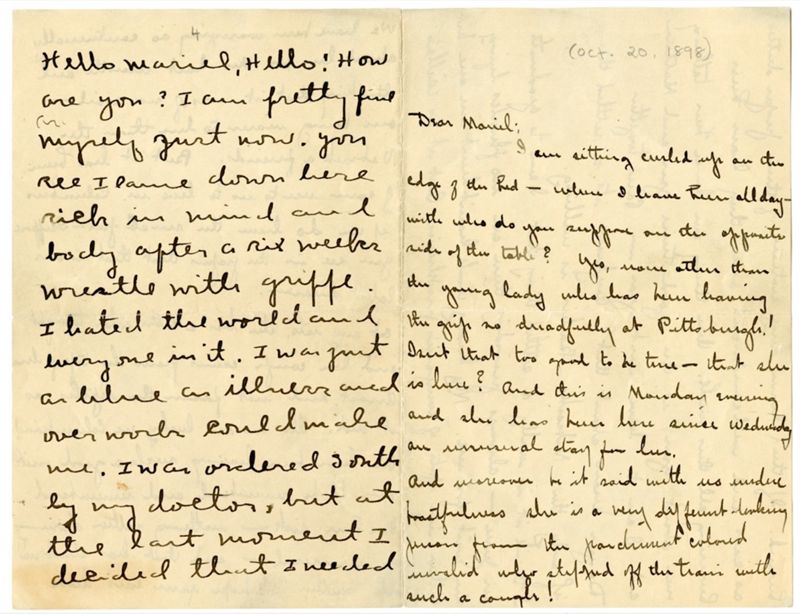 4
Hello Mariel, Hello! How
are you? I am pretty fine
myself just now. you
see I came down here
sick in mind and
body after a six weeks
wrestle with grippe.
I hated the world and
everyone in it. I was just
as blue as illness and
over work could make
me. I was ordered South
by my doctor, but at
the last moment I
decided that I needed
(Oct. 20. 1898)
Dear Mariel;
I am sitting curled up on the
edge of the bed — where I have been all day —
with who do you suppose on the opposite
side of the table? Yes, none other than
the young lady who has been having
the grip so dreadfully at Pittsburgh!
Isn't that too good to be true — that she
is here? And this is Monday evening
and she has been here since Wednesday
an unusual stay for her.
And moreover be it said with no undue
boastfulness she is a very different-looking
person from the parchment colored
invalid who stepped off the train with
such a cough!